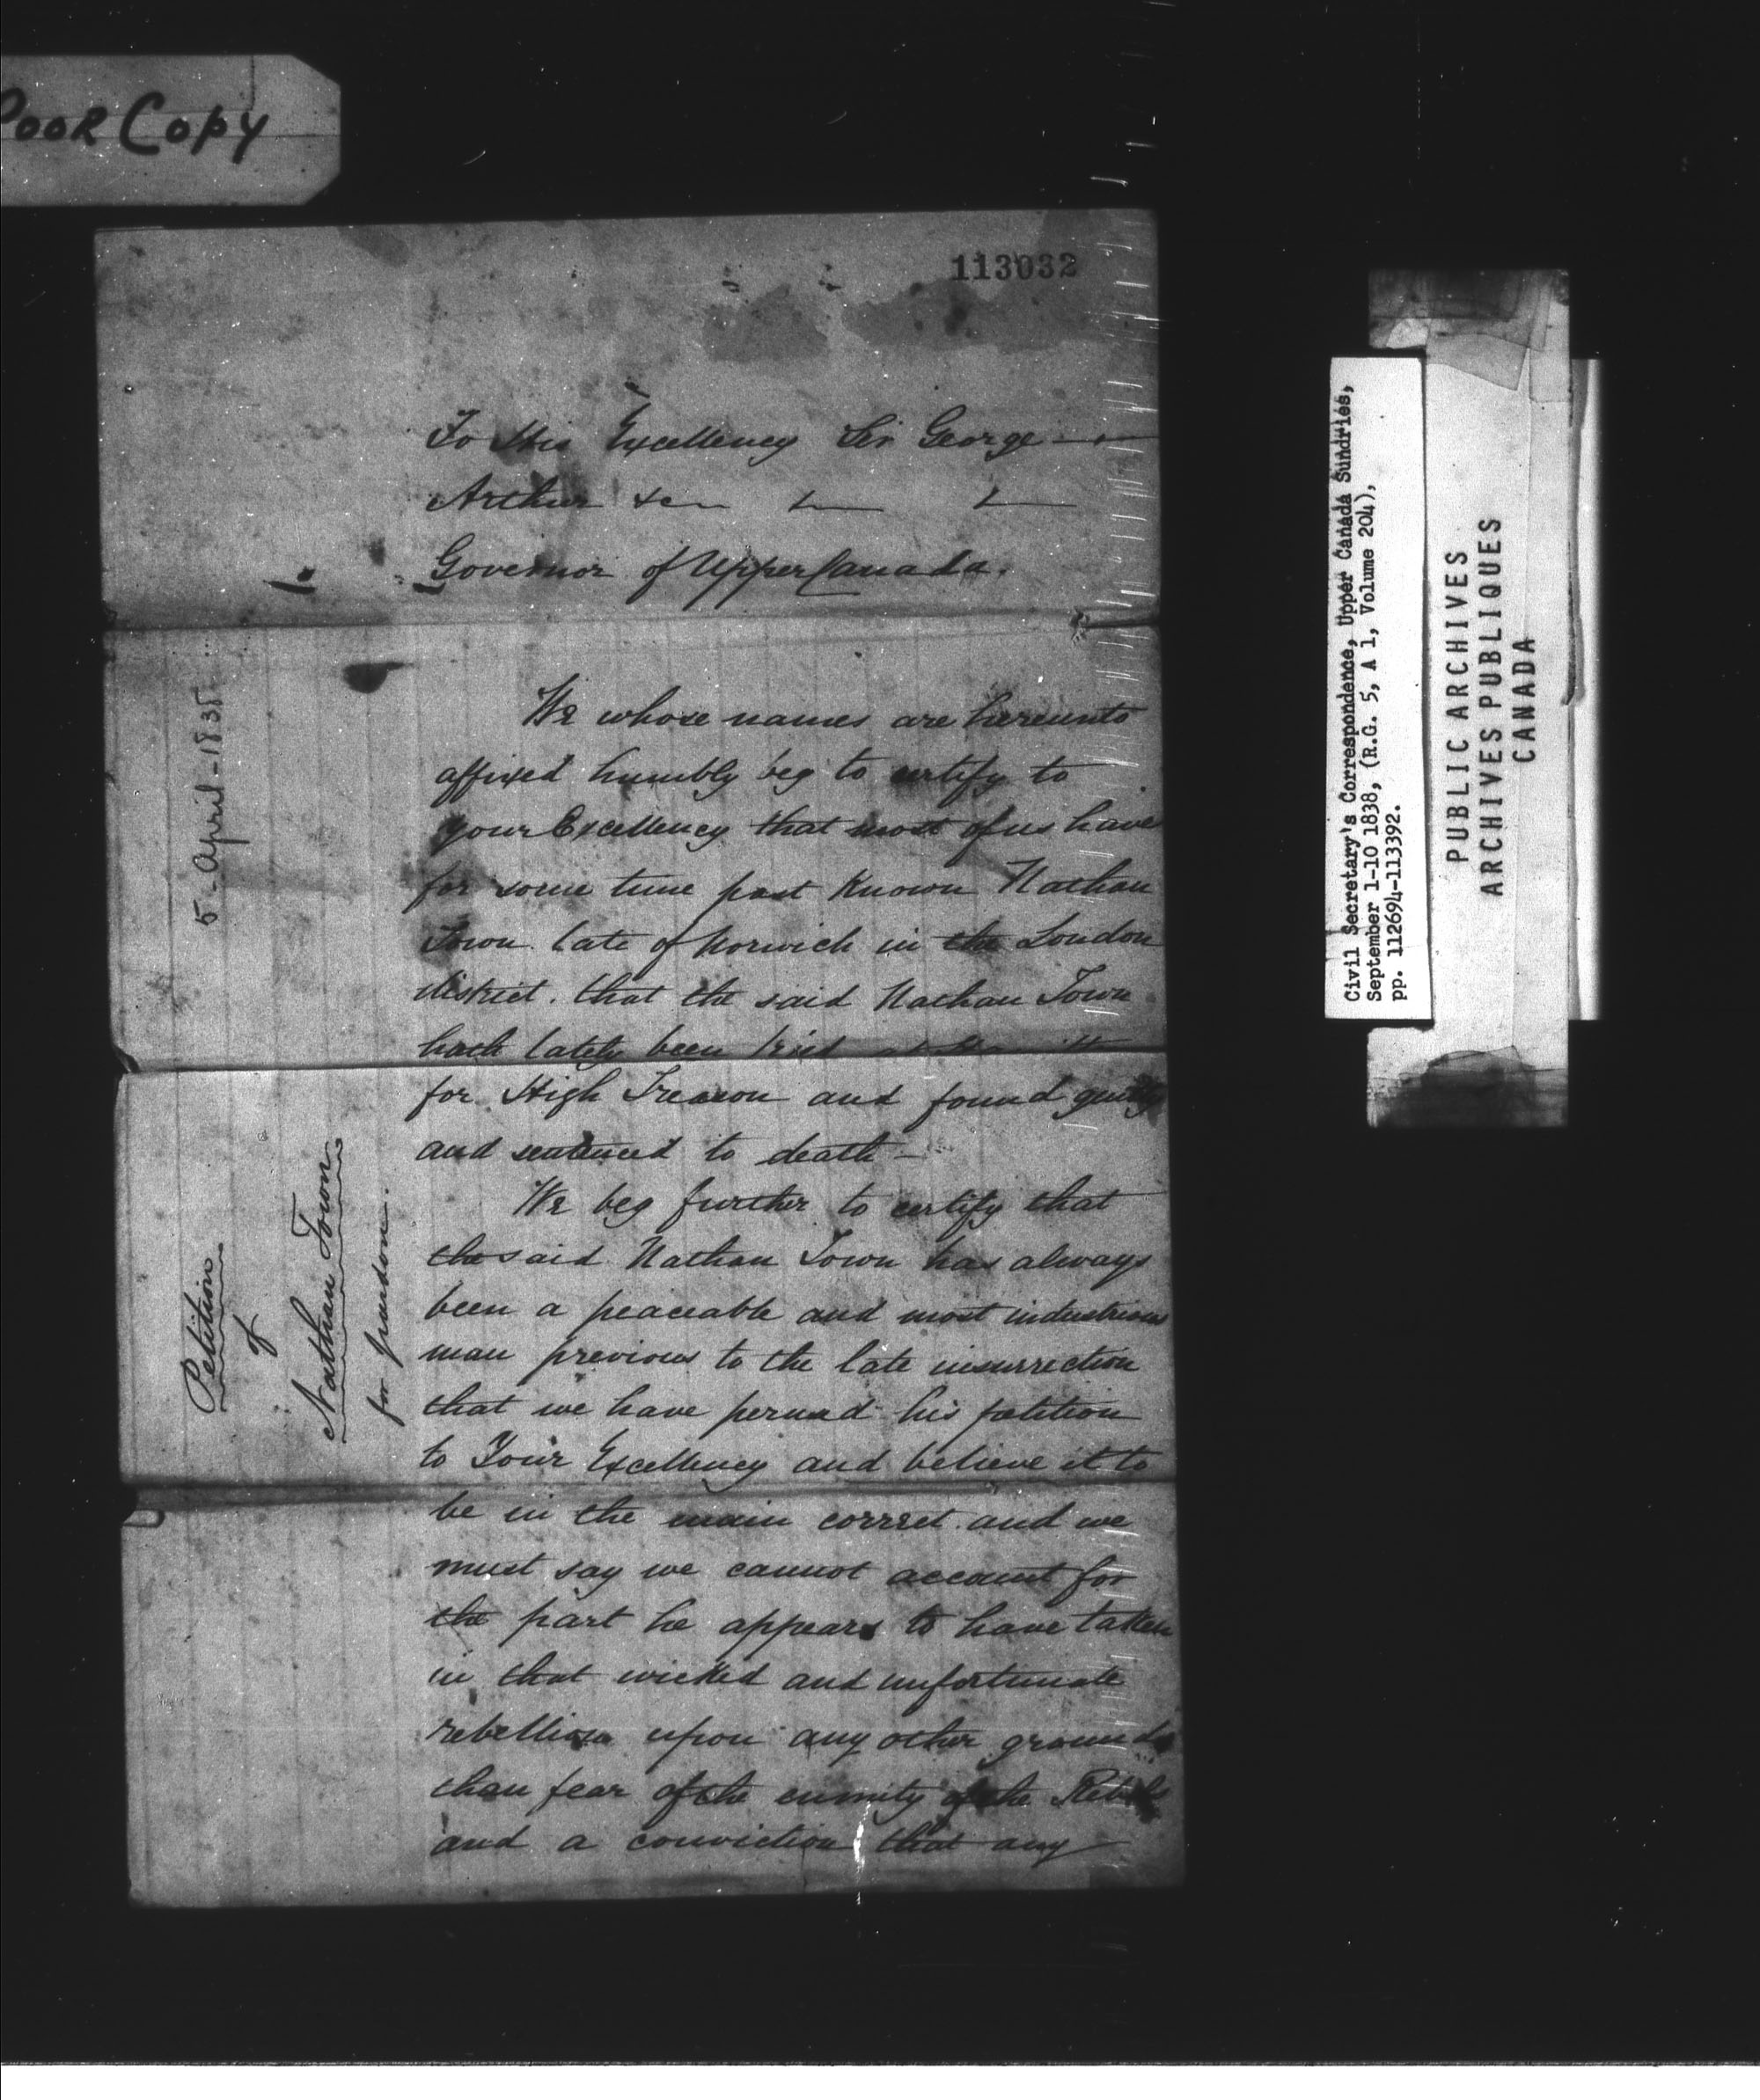 Poor Copy
113032
To His Excellency Sir George
Arthur &c
Governor of Upper Canada.
We whose names are hereunto
affixed humbly beg to certify to
your Excellency that most of us have
for some time past Known Nathan
Town late of Norwich in the London
district. that the said Nathan Town
hath lately been tried at
for High Treason and found guilty
and sentenced to death -
We beg further to certify that
the said Nathan Town has always
been a peaceable and most industrious
man previous to the late insurrection
that we have perused his petition
to Your Excellency and believe it to
be in the main correct. and we
must say we cannot account for
the part he appears to have taken
in that wicked and unfortunate
rebellion upon any other grounds
than fear of the enmity of the Rebels
and a conviction that any
5 - April - 1838
Petition
of
Nathan Town
for pardon.
Civil Secretary's Correspondence, Upper Canada Sundries,
September 1-10 1838, (R.G. 5, A 1, Volume 204),
pp. 112694-113392.
PUBLIC ARCHIVES
ARCHIVES PUBLIQUES
CANADA